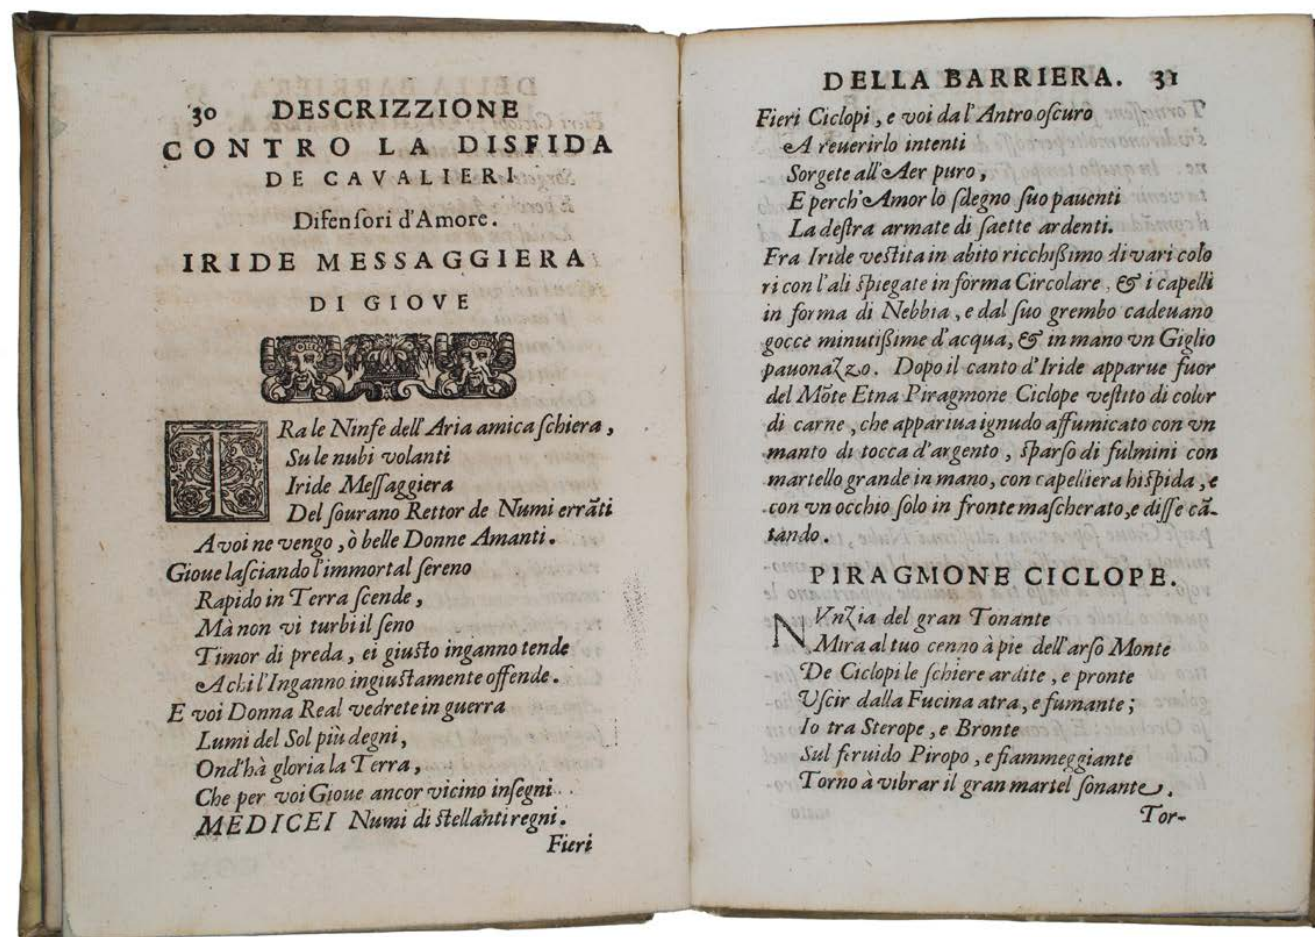 30 DESCRIZZIONE
CONTRO LA DISFIDA
DE CAVALIERI
Difenſori d'Amore.
IRIDE MESSAGGIERA
DI GIOVE
TRa le Ninfe dell'Aria amica ſchiera,
Su le nubi volanti
Iride Meſſaggiera
Del ſourano Rettor de Numi errãti
A voi ne vengo, ò belle Donne Amanti.
Gioue laſciando l'immortal ſereno
Rapido in Terra ſcende,
Mà non vi turbi il ſeno
Timor di preda, ei giuſto inganno tende
A chi l'Inganno ingiuſtamente offende.
E voi Donna Real vedrete in guerra
Lumi del Sol più degni,
Ond'hà gloria la Terra,
Che per voi Gioue ancor vicino inſegni
MEDICEI Numi di ſtellanti regni.
Fieri
DELLA BARRIERA. 31
Fieri Ciclopi, e voi da l'Antro oſcuro
A reuerirlo intenti
Sorgete all'Aer puro,
E perch'Amor lo ſdegno ſuo pauenti
La deſtra armate di ſaette ardenti.
Fra Iride veſtita in abito ricchißimo di vari colo
ri con l'ali ſpiegate in forma Circolare, & i capelli
in forma di Nebbia, e dal ſuo grembo cadeuano
gocce minutißime d'acqua, & in mano vn Giglio
pauonazzo. Dopo il canto d'Iride apparue fuor
del Mõte Etna Piragmone Ciclope veſtito di color
di carne, che appariua ignudo affumicato con vn
manto di tocca d'argento, ſparſo di fulmini con
martello grande in mano, con capelliera hiſpida, e
con vn occhio ſolo in fronte maſcherato, e diſſe cã-
tando.
PIRAGMONE CICLOPE.
NVnzia del gran Tonante
Mira al tuo cenno à pie dell'arſo Monte
De Ciclopi le ſchiere ardite, e pronte
Vſcir dalla Fucina atra, e fumante;
Io tra Sterope, e Bronte
Sul feruido Piropo, e fiammeggiante
Torno à vibrar il gran martel ſonante.
Tor-